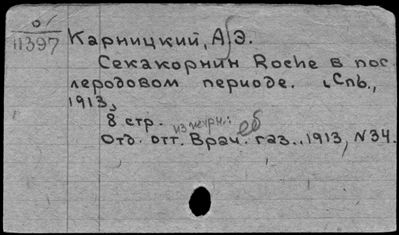 0
11397
Карницкий, А. Э.
Секакорнин Roche в пос
леродовом периоде. Спб.,
1913,
8 стр. из журн.:
Отд. отт. Врач. газ., 1913, N34.